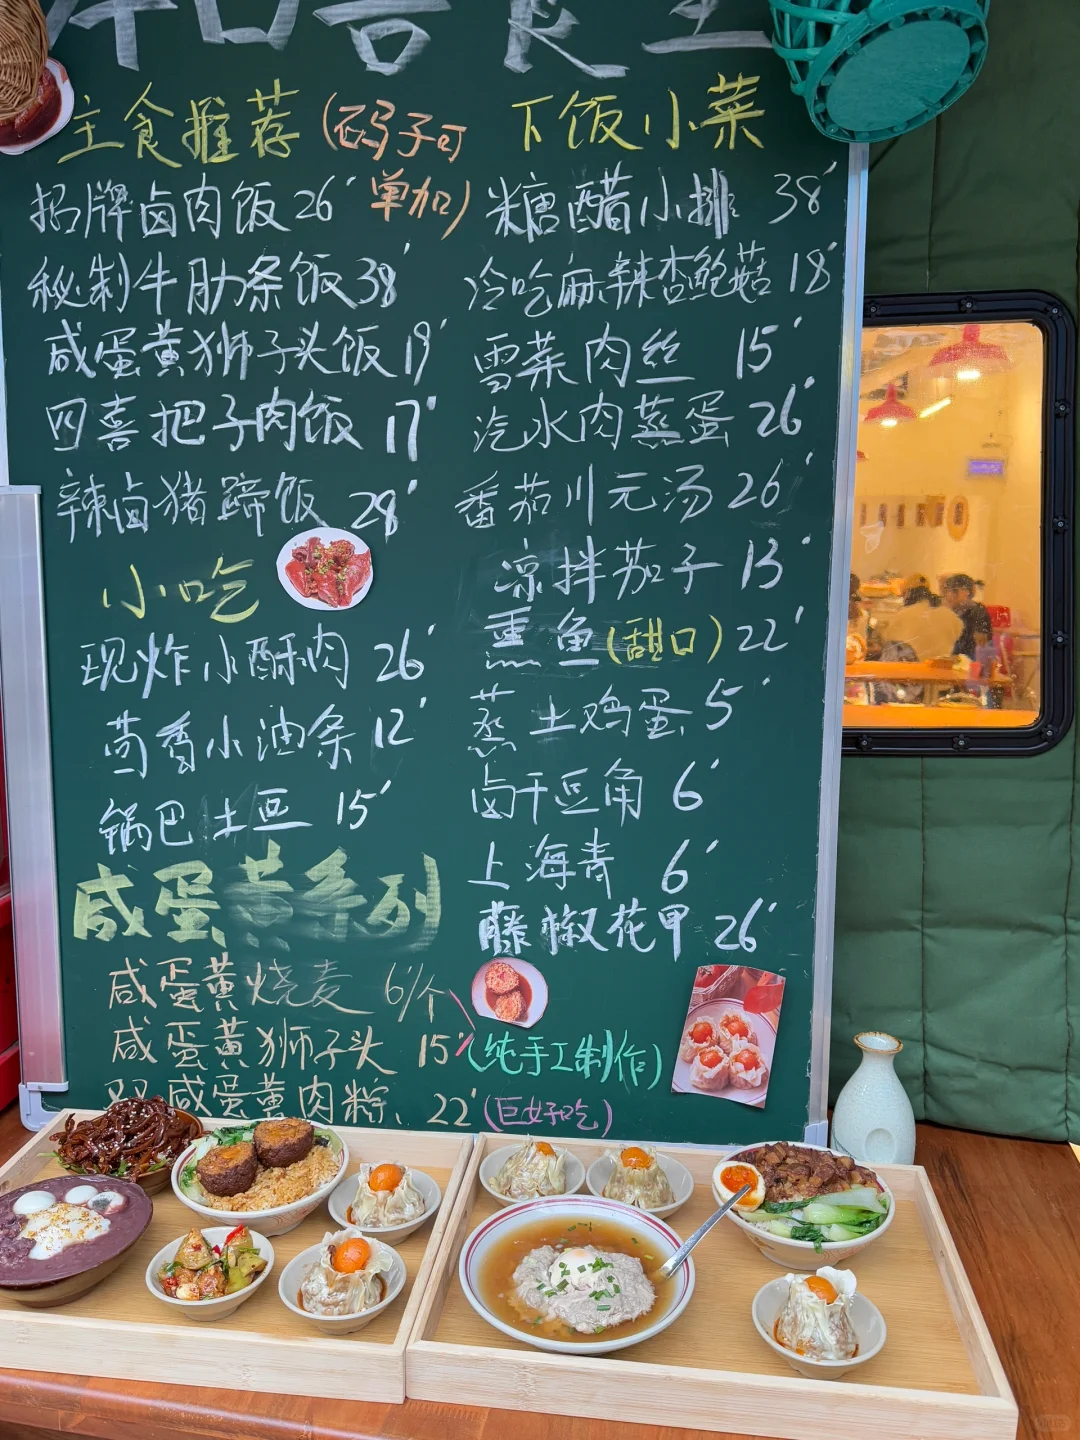 口吾食
主食推荐(码子可单加)
招牌卤肉饭26
秘制牛肋条饭38
咸蛋黄狮子头饭19
四喜把子肉饭17
辣卤猪蹄饭 28
小吃
现炸小酥肉 26
茴香小油条 12
锅巴土豆 15
咸蛋黄系列
咸蛋黄烧麦 6/个
咸蛋黄狮子头 15(纯手工制作)
双咸蛋黄肉粽、22(巨好吃)
下饭小菜
糖醋小排 38
冷吃麻辣杏鲍菇 18
雪菜肉丝 15
汽水肉蒸蛋 26
番茄川元汤 26
凉拌茄子 13
熏鱼(甜口) 22
蒸土鸡蛋 5
卤干豆角 6
上海青 6
藤椒花甲 26